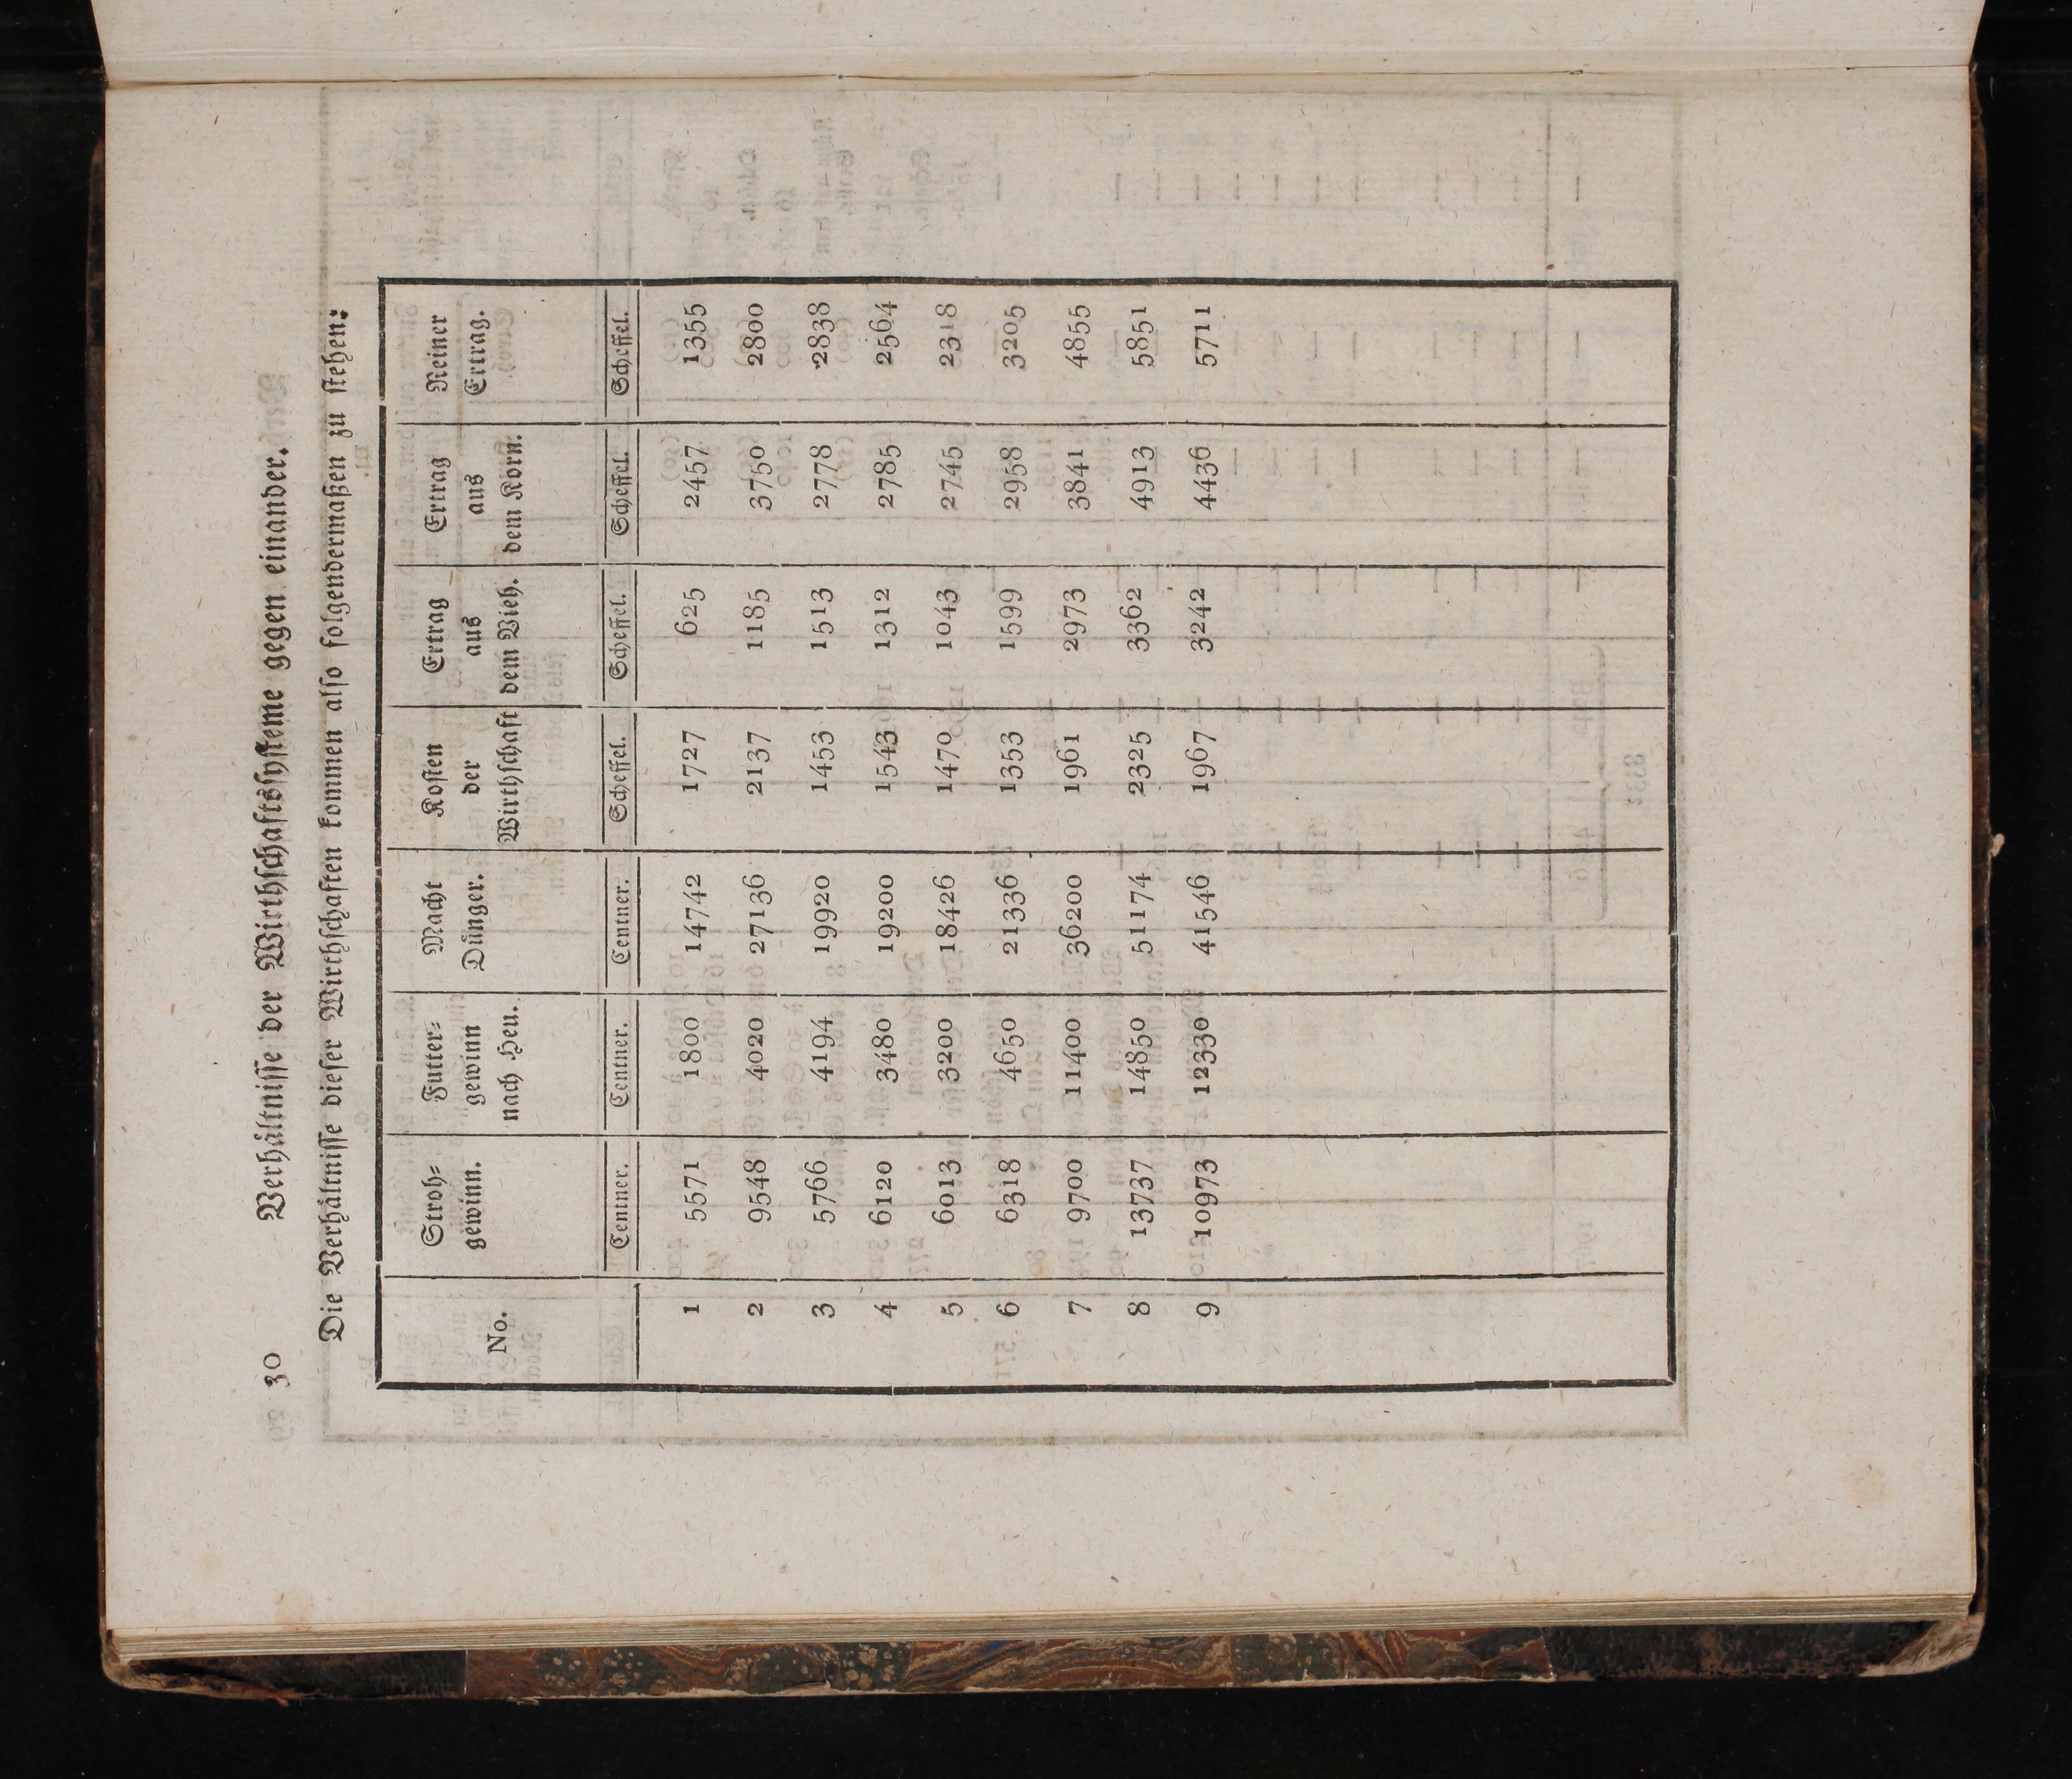 30 Verhältnisse der Wirthschaftssysteme gegen einander.
Die Verhältnisse dieser Wirthschaften kommen also folgendermaßen zu stehen:
No. | Stroh-gewinn. | Futter-gewinn nach Heu. | Macht Dünger. | Kosten der Wirthschaft | Ertrag aus dem Vieh. | Ertrag aus dem Korn. | Reiner Ertrag.
Centner. | Centner. | Centner. | Scheffel. | Scheffel. | Scheffel. | Scheffel.
1 | 5571 | 1800 | 14742 | 1727 | 625 | 2457 | 1355
2 | 9548 | 4020 | 27136 | 2137 | 1185 | 3750 | 2800
3 | 5766 | 4194 | 19920 | 1453 | 1513 | 2778 | 2838
4 | 6120 | 3480 | 19200 | 1543 | 1312 | 2785 | 2564
5 | 6013 | 3200 | 18426 | 1470 | 1043 | 2745 | 2318
6 | 6318 | 4650 | 21336 | 1353 | 1599 | 2958 | 3205
7 | 9700 | 11400 | 36200 | 1961 | 2973 | 3841 | 4855
8 | 13737 | 14850 | 51174 | 2325 | 3362 | 4913 | 5851
9 | 10973 | 12330 | 41546 | 1967 | 3242 | 4436 | 5711